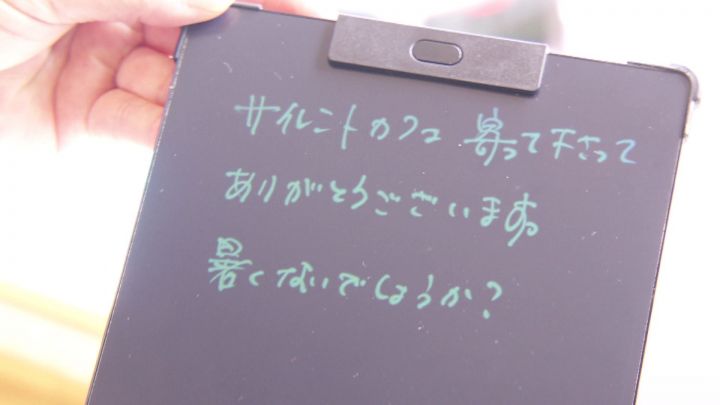 サイレントカフェ 寄って下さって
ありがとうございます
暑くないでしょうか?